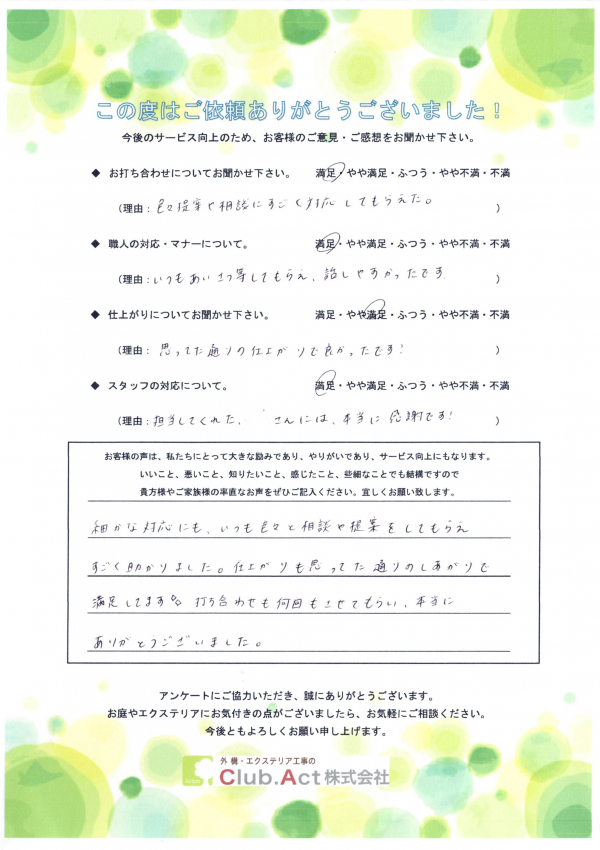 この度はご依頼ありがとうございました！
今後のサービス向上のため、お客様のご意見・ご感想をお聞かせ下さい。
◆ お打ち合わせについてお聞かせ下さい。 満足・やや満足・ふつう・やや不満・不満
(理由：色々提案や相談にすごく対応してもらえた。 )
◆ 職人の対応・マナーについて。 満足・やや満足・ふつう・やや不満・不満
(理由：いつもあいさつ等してもらえ、話しやすかったです )
◆ 仕上がりについてお聞かせ下さい。 満足・やや満足・ふつう・やや不満・不満
(理由： 思ってた通りの仕上がりで良かったです! )
◆ スタッフの対応について。 満足・やや満足・ふつう・やや不満・不満
(理由：担当してくれた、 さんには、本当に感謝です! )
お客様の声は、私たちにとって大きな励みであり、やりがいであり、サービス向上にもなります。
いいこと、悪いこと、知りたいこと、感じたこと、些細なことでも結構ですので
貴方様やご家族様の率直なお声をぜひご記入ください。宜しくお願い致します。
細かな対応にも、いつも色々と相談や提案をしてもらえ
すごく助かりました。仕上がりも思ってた通りのしあがりで
満足してます 打ち合わせも何回もさせてもらい、本当に
ありがとうございました。
アンケートにご協力いただき、誠にありがとうございます。
お庭やエクステリアにお気付きの点がございましたら、お気軽にご相談ください。
今後ともよろしくお願い申し上げます。
外構・エクステリア工事の
Club.Act株式会社